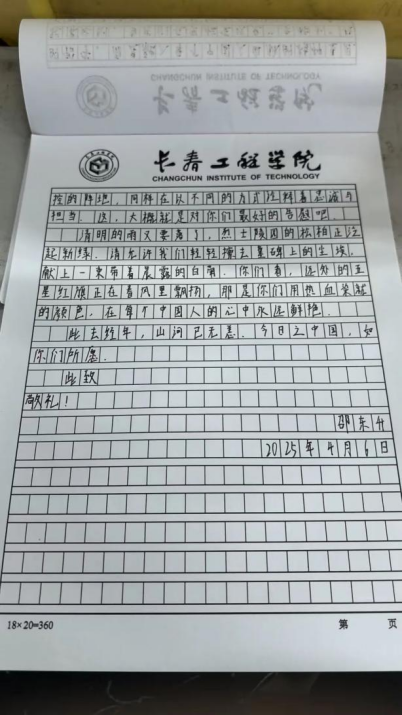 CHANGCHUN INSTITUTE OF TECHNOLOGY
长春工程学院
CHANGCHUN INSTITUTE OF TECHNOLOGY
的阵地，同样在以不同的方式诠释着忠诚与
担当。这，大概就是对你们最好的告慰吧。
清明的雨又要来了，烈士陵园的松柏正泛
起新绿。请允许我们轻轻擦去墓碑上的尘埃，
献上一束带着晨露的白菊。你们看，远处的五
星红旗正在春风里飘扬，那是你们用热血染就
的颜色，在每个中国人的心中永远鲜艳。
此去经年，山河已无恙。今日之中国，如
你们所愿。
此致
敬礼！
邵东
2025年4月6日
18×20=360
第 页